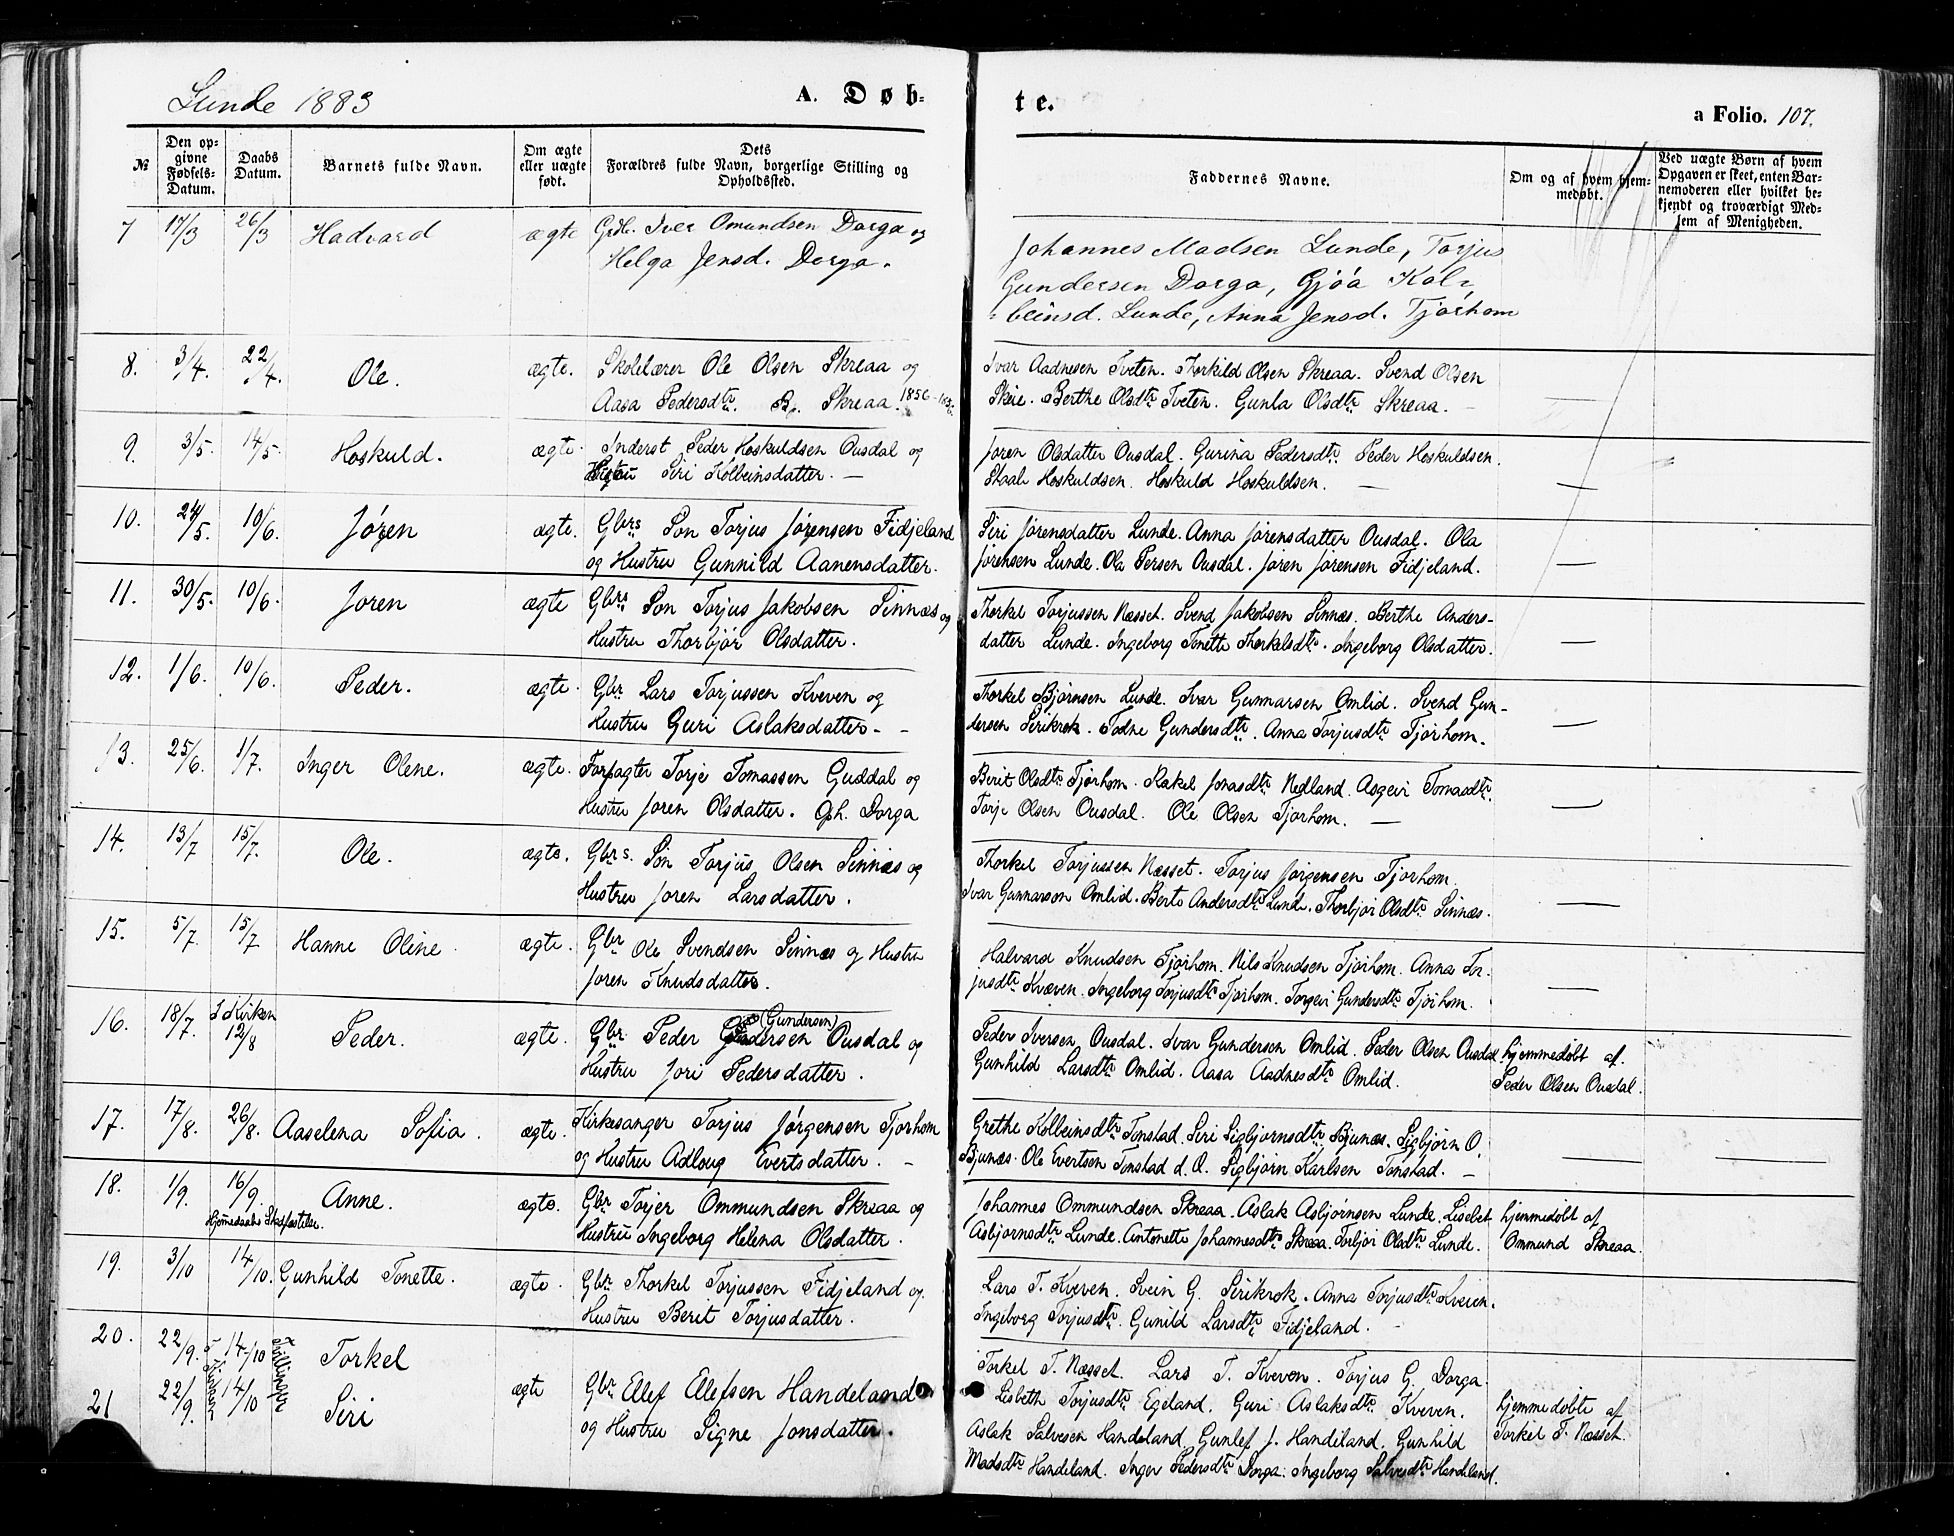 Lunde 1883
A. Døb-
te.
a Folio. 107.
№
Den op-
givne
Fødsels-
Datum.
Daabs
Datum.
Barnets fulde Navn.
Om ægte
eller uægte
født.
Dets
Forældres fulde Navn, borgerlige Stilling og
Opholdssted.
Faddernes Navne.
Om og af hvem hjem-
medøbt.
Ved uægte Børn af hvem
Opgaven er skeet, enten Bar-
nemoderen eller hvilket be-
kjendt og troværdigt Med-
lem af Menigheden.
7 17/3 26/3 Hadvard ægte Grdbr. Iver Omundsen Dorga og
Helga Jensd. Dorga.
Johannes Madsen Lunde, Torjus
Gundersen Dorga, Gjøa Kol-
beinsd. Lunde, Anna Jensd. Tjørhom
8. 3/4. 22/4. Ole. ægte. Skolelærer Ole Olsen Skreaa og
Aasa Pedersdtr. Br. Skreaa. 1856
Ivar Aadnesen Tveten. Thorkild Olsen Skreaa. Svend Olsen
Skeie. Berthe Olsdtr Tveten. Gunla Olsdtr Skreaa. —
9. 3/5. 14/5. Hoskuld. ægte. Inderst Peder Hoskuldsen Ousdal og
Hustru Siri Kolbeinsdatter. —
Joren Olsdatter Ousdal. Gurina Pedersdtr Peder Hoskuldsen.
Staale Hoskuldsen. Hoskuld Hoskuldsen. —
10. 24/5. 10/6. Jørgen ægte. Gbrs Søn Torjus Jørgensen Fidjeland
og Hustru Gunnild Aanensdatter.
Siri Jørensdatter Lunde. Anna Jørensdatter Ousdal. Ola
Jørensen Lunde. Ola Persen Ousdal. Jøren Jørensen Fidjeland.
11. 30/5. 10/6. Joren ægte Gbrs Søn Torjus Jakobsen Sinnæs og
Hustru Thorbjør Olsdatter.
Thorkel Torjussen Næsset. Svend Jakobsen Sinnæs. Berthe Anders-
datter Lunde. Ingeborg Tonette Thorkelsdtr. Ingeborg Olsdatter.
12. 1/6. 10/6. Peder. ægte. Gbr Lars Torjussen Kveven og
Hustru Guri Aslaksdatter. -
Thorkel Bjørnsen Lunde. Ivar Gunnarsen Omlid. Svend Gun-
dersen Sirikrok. Todne Gundersdtr. Anna Torjusdtr Tjørhom.
13. 25/6. 1/7. Inger Olene. ægte. Forpagter Torje Tomassen Guddal og
Hustru Joren Olsdatter. Oph. Dorga
Berit Olsdtr Tjørhom. Rakel Jonasdtr Nedland. Asgeir Tomasdtr.
Torje Olsen Ousdal. Ole Olsen Tjørhom. —
14. 13/7 15/7. Ole. ægte. Gbrs. Søn Torjus Olsen Sinnæs og
Hustru Joren Larsdatter.
Thorkel Torjussen Næsset. Torjus Jørgensen Tjørhom.
Ivar Gunnarson Omlid. Berte Andersdtr Lunde. Thorbjør Olsdtr Sinnæs.
15. 5/7. 15/7 Hanne Oline. ægte. Gbr Ole Svendsen Sinnæs og Hustru
Joren Knudsdatter.
Halvard Knudsen Tjørhom. Nils Knudsen Tjørhom. Anna Tor-
jusdtr Kvæven. Ingeborg Torjusdtr Tjørhom. Torgeri Gundersdtr Tjørhom.
16. 18/7. I Kirken 12/8 Peder. ægte. Gbr Peder (Gundersen) Ousdal og
Hustru Jori Pedersdatter.
Peder Iversen Ousdal. Ivar Gundersen Omlid. Peder Olsen Ousdal
Gunhild Larsdtr Omlid. Aasa Aadnesdtr Omlid.
hjemmedøbt af
Peder Olsen Ousdal.
17. 17/8. 26/8. Aaselena Sofia. ægte. Kirkesanger Torjus Jørgensen Tjorhom
og Hustru Adloug Evertsdatter. —
Grethe Kolbeinsdtr Tonstad. Siri Sigbjornsdtr Bjunæs. Sigbjørn O.
Bjunæs. Ole Evertsen Tonstad d. O. Sigbjørn Karlsen Tonstad. —
18. 1/9. 16/9. Anne. ægte. Gbr Torjer Ommundsen Skreaa og
Hustru Ingeborg Helena Olsdatter.
Johannes Ommundsen Skreaa. Aslak Asbjørnsen Lunde. Lisebet
Asbjornsdtr Lunde. Antonette Johannesdtr Skreaa. Torbjør Olsdtr Lunde.
hjemmedøbt af
Ommund Skreaa.
19. 3/10 14/10. Gunhild Tonette. ægte. Gbr Thorkel Torjussen Fidjeland og
Hustru Berit Torjusdatter.
Lars T. Kveven. Svein G. Sirikrok. Anna Torjusdtr Kveven.
Ingeborg Torjusdtr. Gunild Larsdtr Fidjeland.
20. 22/9. 14/10 Torkel
21 22/9. I Kirken 14/10 Tvillinger Siri ægte Gbr Ellef Ellefsen Handeland
og Hustru Signe Jonsdatter.
Torkel T. Næsset. Lars T. Kveven. Torjus G. Dorga.
Lisbeth Torjusdtr Egeland. Guri Aslaksdtr Kveven.
Aslak Salvesen Handeland. Gunlef J. Handeland. Gunhild
Madsdtr Handeland. Inger Pedersdtr Dorga. Ingeborg Salvesdtr Handeland.
hjemmedøbte af
Torkel T. Næsset.